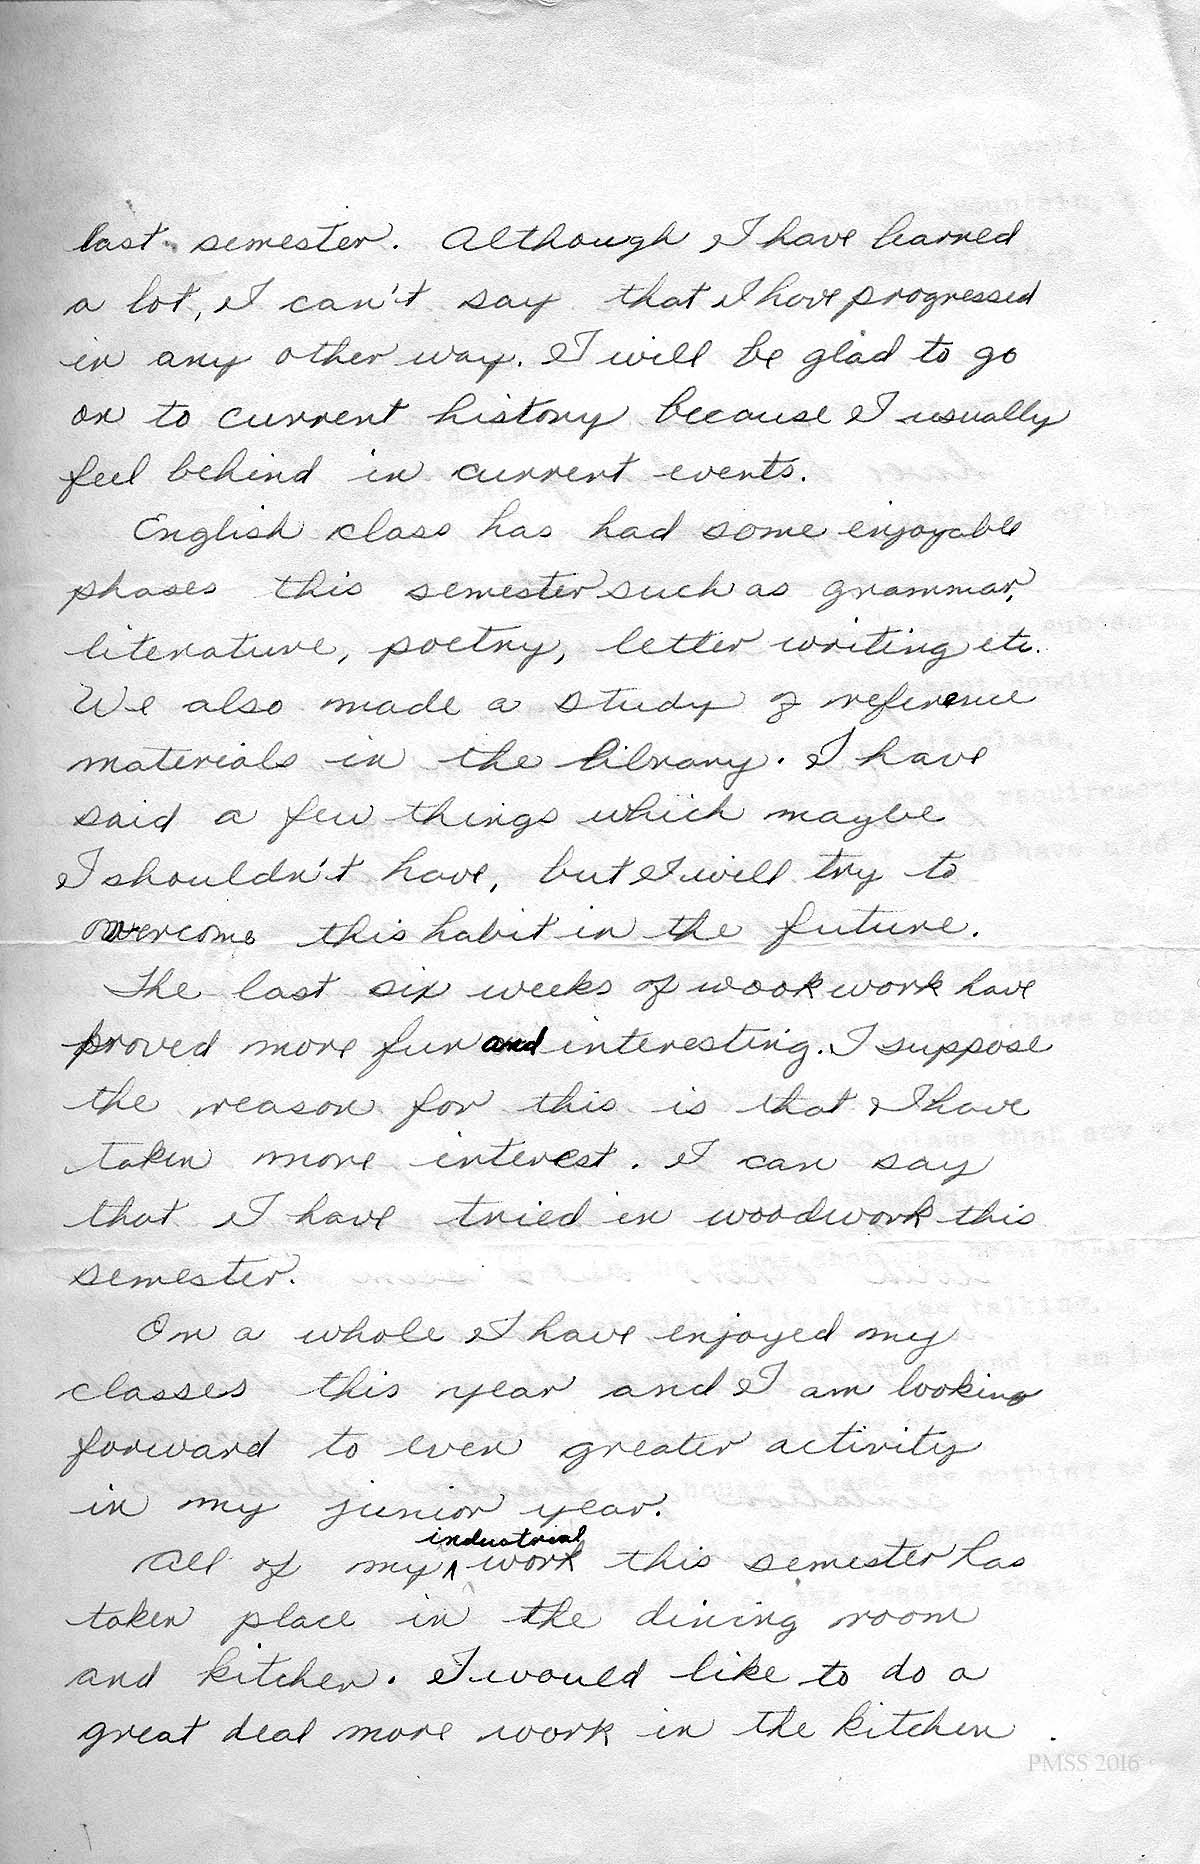 last semester. Although I have learned
a lot, I can't say that I have progressed
in any other way. I will be glad to go
on to current history because I usually
feel behind in current events.
English class has had some enjoyable
phases this semester such as grammar,
literature, poetry, letter writing etc.
We also made a study of reference
materials in the library. I have
said a few things which maybe
I shouldn't have, but I will try to
overcome this habit in the future.
The last six weeks of wookwork have
proved more fun and interesting. I suppose
the reason for this is that I have
taken more interest. I can say
that I have tried in woodwork this
semester.
On a whole I have enjoyed my
classes this year and I am looking
forward to even greater activity
in my junior year.
industrial
All of my ^ work this semester has
taken place in the dining room
and kitchen. I would like to do a
great deal more work in the kitchen
PMSS 2016